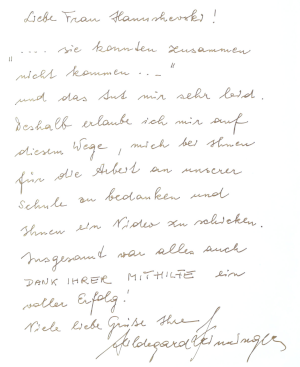 Liebe Frau Hannshevski!
".... sie konnten zusammen
nicht kommen ..."
und das tut mir sehr leid.
Deshalb erlaube ich mir auf
diesem Wege, mich bei Ihnen
für die Arbeit an unserer
Schule zu bedanken und
Ihnen ein Video zu schicken.
Insgesamt war alles auch
DANK IHRER MITHILFE ein
voller Erfolg!
Viele liebe Grüße Ihre
Hildegard